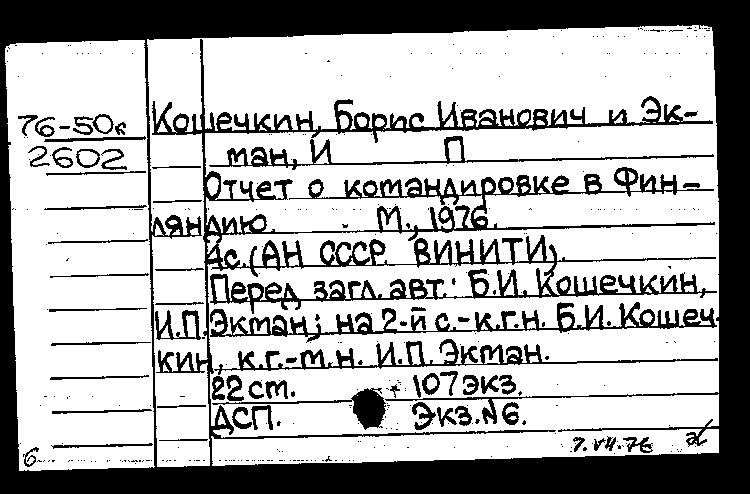 76-50к Кошечкин, Борис Иванович и Эк-
2602 ман, И П
Отчет о командировке в Фин-
ляндию. М., 1976.
4с. (АН СССР. ВИНИТИ).
Перед загл. авт.: Б.И. Кошечкин,
И.П. Экман; на 2-й с.-к.г.н. Б.И. Кошеч-
кин, к.г.-м.н. И.П. Экман.
22 ст. 107 экз.
ДСП. Экз.№6.
6 7.VII.76